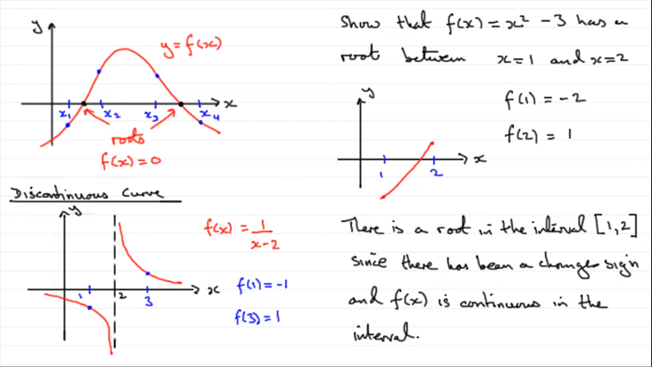 y
y = f(x)
x₁ x₂ x₃ x₄ x
roots
f(x) = 0
Discontinuous Curve
y
f(x) = 1/(x-2)
1 2 3 x
f(1) = -1
f(3) = 1
Show that f(x) = x² - 3 has a
root between x = 1 and x = 2
y
f(1) = -2
f(2) = 1
1 2 x
There is a root in the interval [1,2]
since there has been a change sign
and f(x) is continuous in the
interval.